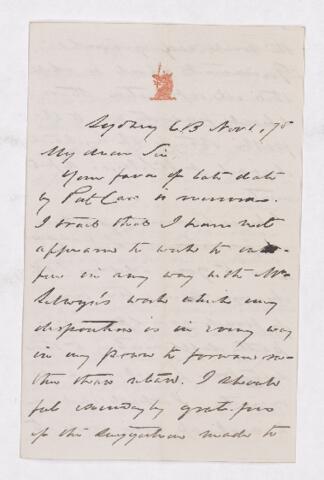 Sydney C.B Nov 1, 75
My dear Sir
Your favor of late date
by Post Car is
I trust that I have not
appeared to wish to inter-
fere in any way with Mr
Selwyn's work which my
disposition is in every way
in my power to forward ra-
ther than retard. I should
feel exceedingly
if the suggestion made to